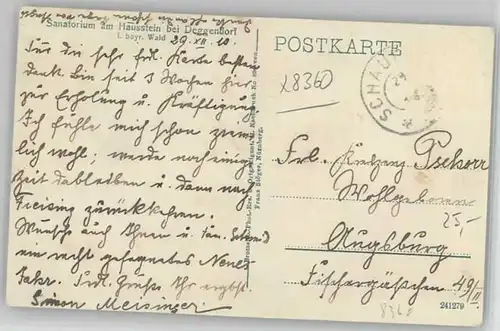 Sanatorium am Hausstein bei Deggendorf
i. bayr. Wald
29. XII. 10.
Für die sehr frdl. Karte besten
Dank. Bin seit 3 Wochen hier
zur Erholung u. Kräftigung.
Ich fühle mich schon ziem-
lich wohl; werde noch einige
Zeit dableiben u. dann nach
Freising zurückkehren.
Wünsche auch Ihnen u. Fam.
ein recht gesegnetes Neues
Jahr. Frdl. Grüße Ihr ergbst.
Simon Meisinger.
Franz Stöger, Nürnberg.
POSTKARTE
x8360
SCHAU
Frl. Pschorr
Wohlgeboren
25,-
Augsburg
Fischergäßchen 49/II
8360
241279